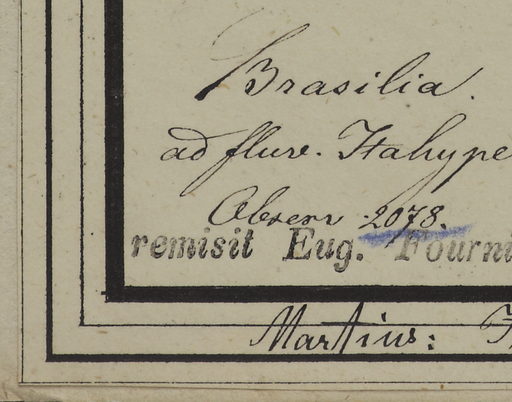 Brasilia.
ad fluv. Itahype
Observ. 2078.
remisit Eug. Fourni
Martius: